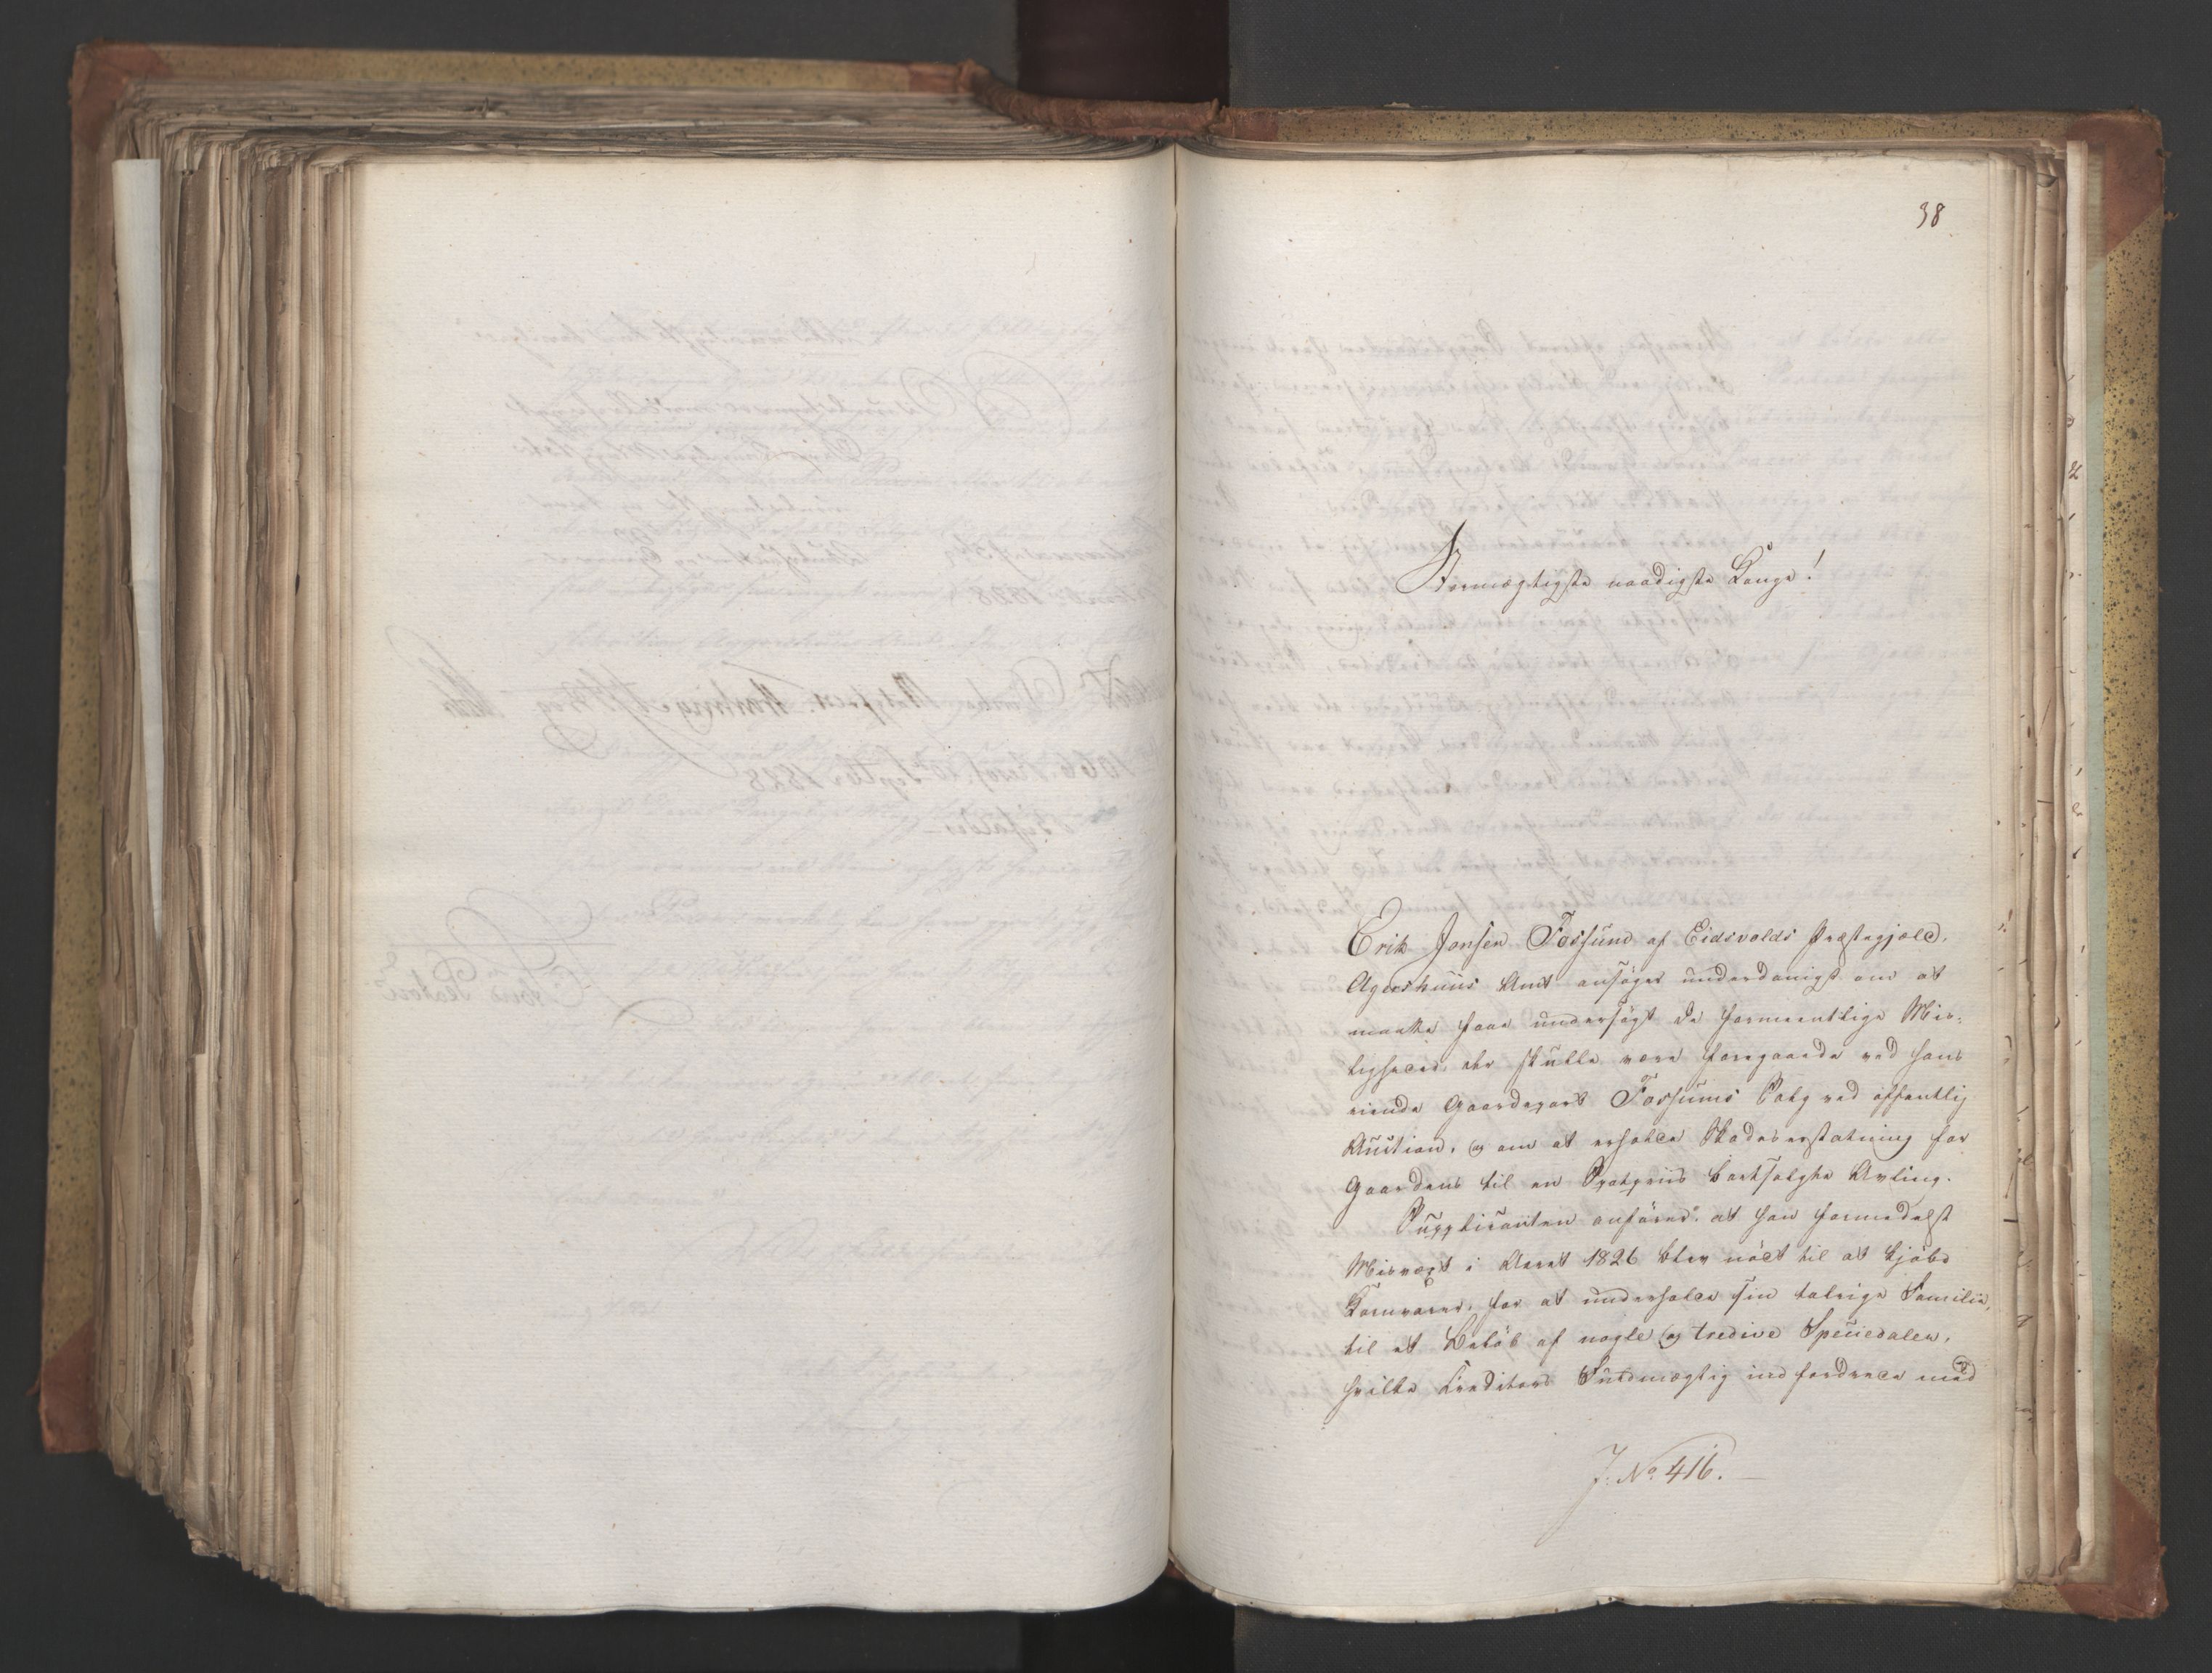 38
Stormægtigste naadigste Konge!
Erik Jonsen Fossum af Eidsvolds Præstegjæld,
Agershuus Amt ansøger underdanigst om at
maatte faae undersøgt de formeentlige Mis-
ligheder, der skulle være foregaaede ved hans
eiende Gaardepart Fossums Salg ved offentlig
Auction, og om at erholde Skadeserstatning for
Gaardens til en Spotpriis bortsolgte Avling.
Supplicanten anfører: at han formedelst
Misvæxt i Aaret 1826 blev nødt til at kjøbe
Kornvarer, for at underholde sin talrige Familie,
til et Beløb af nogle og tredive Speciedaler,
hvilke Creditors Fuldmægtig indfordrede med
J. No 416.